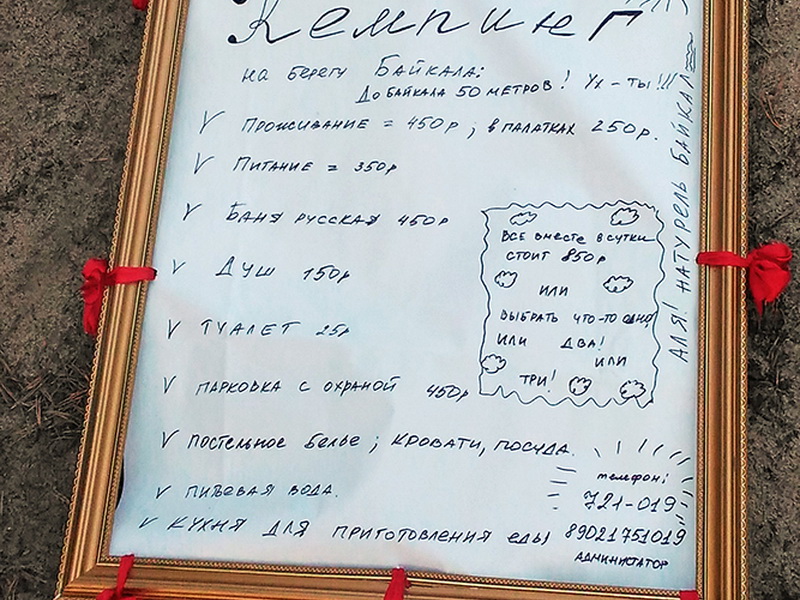 Кемпинг
на берегу Байкала:
До Байкала 50 метров! Ух-ты!!!
Проживание = 450р; в палатках 250р.
Питание = 350р
Баня русская 450р
Душ 150р
Туалет 25р
парковка с охраной 450р
постельное белье; кровати, посуда.
питьевая вода.
кухня для приготовления еды
Все вместе в сутки
стоит 850р
или
выбрать что-то одно
или два!
или
три!
Аля! натурель Байкал
телефон:
721-019
89021751019
администатор